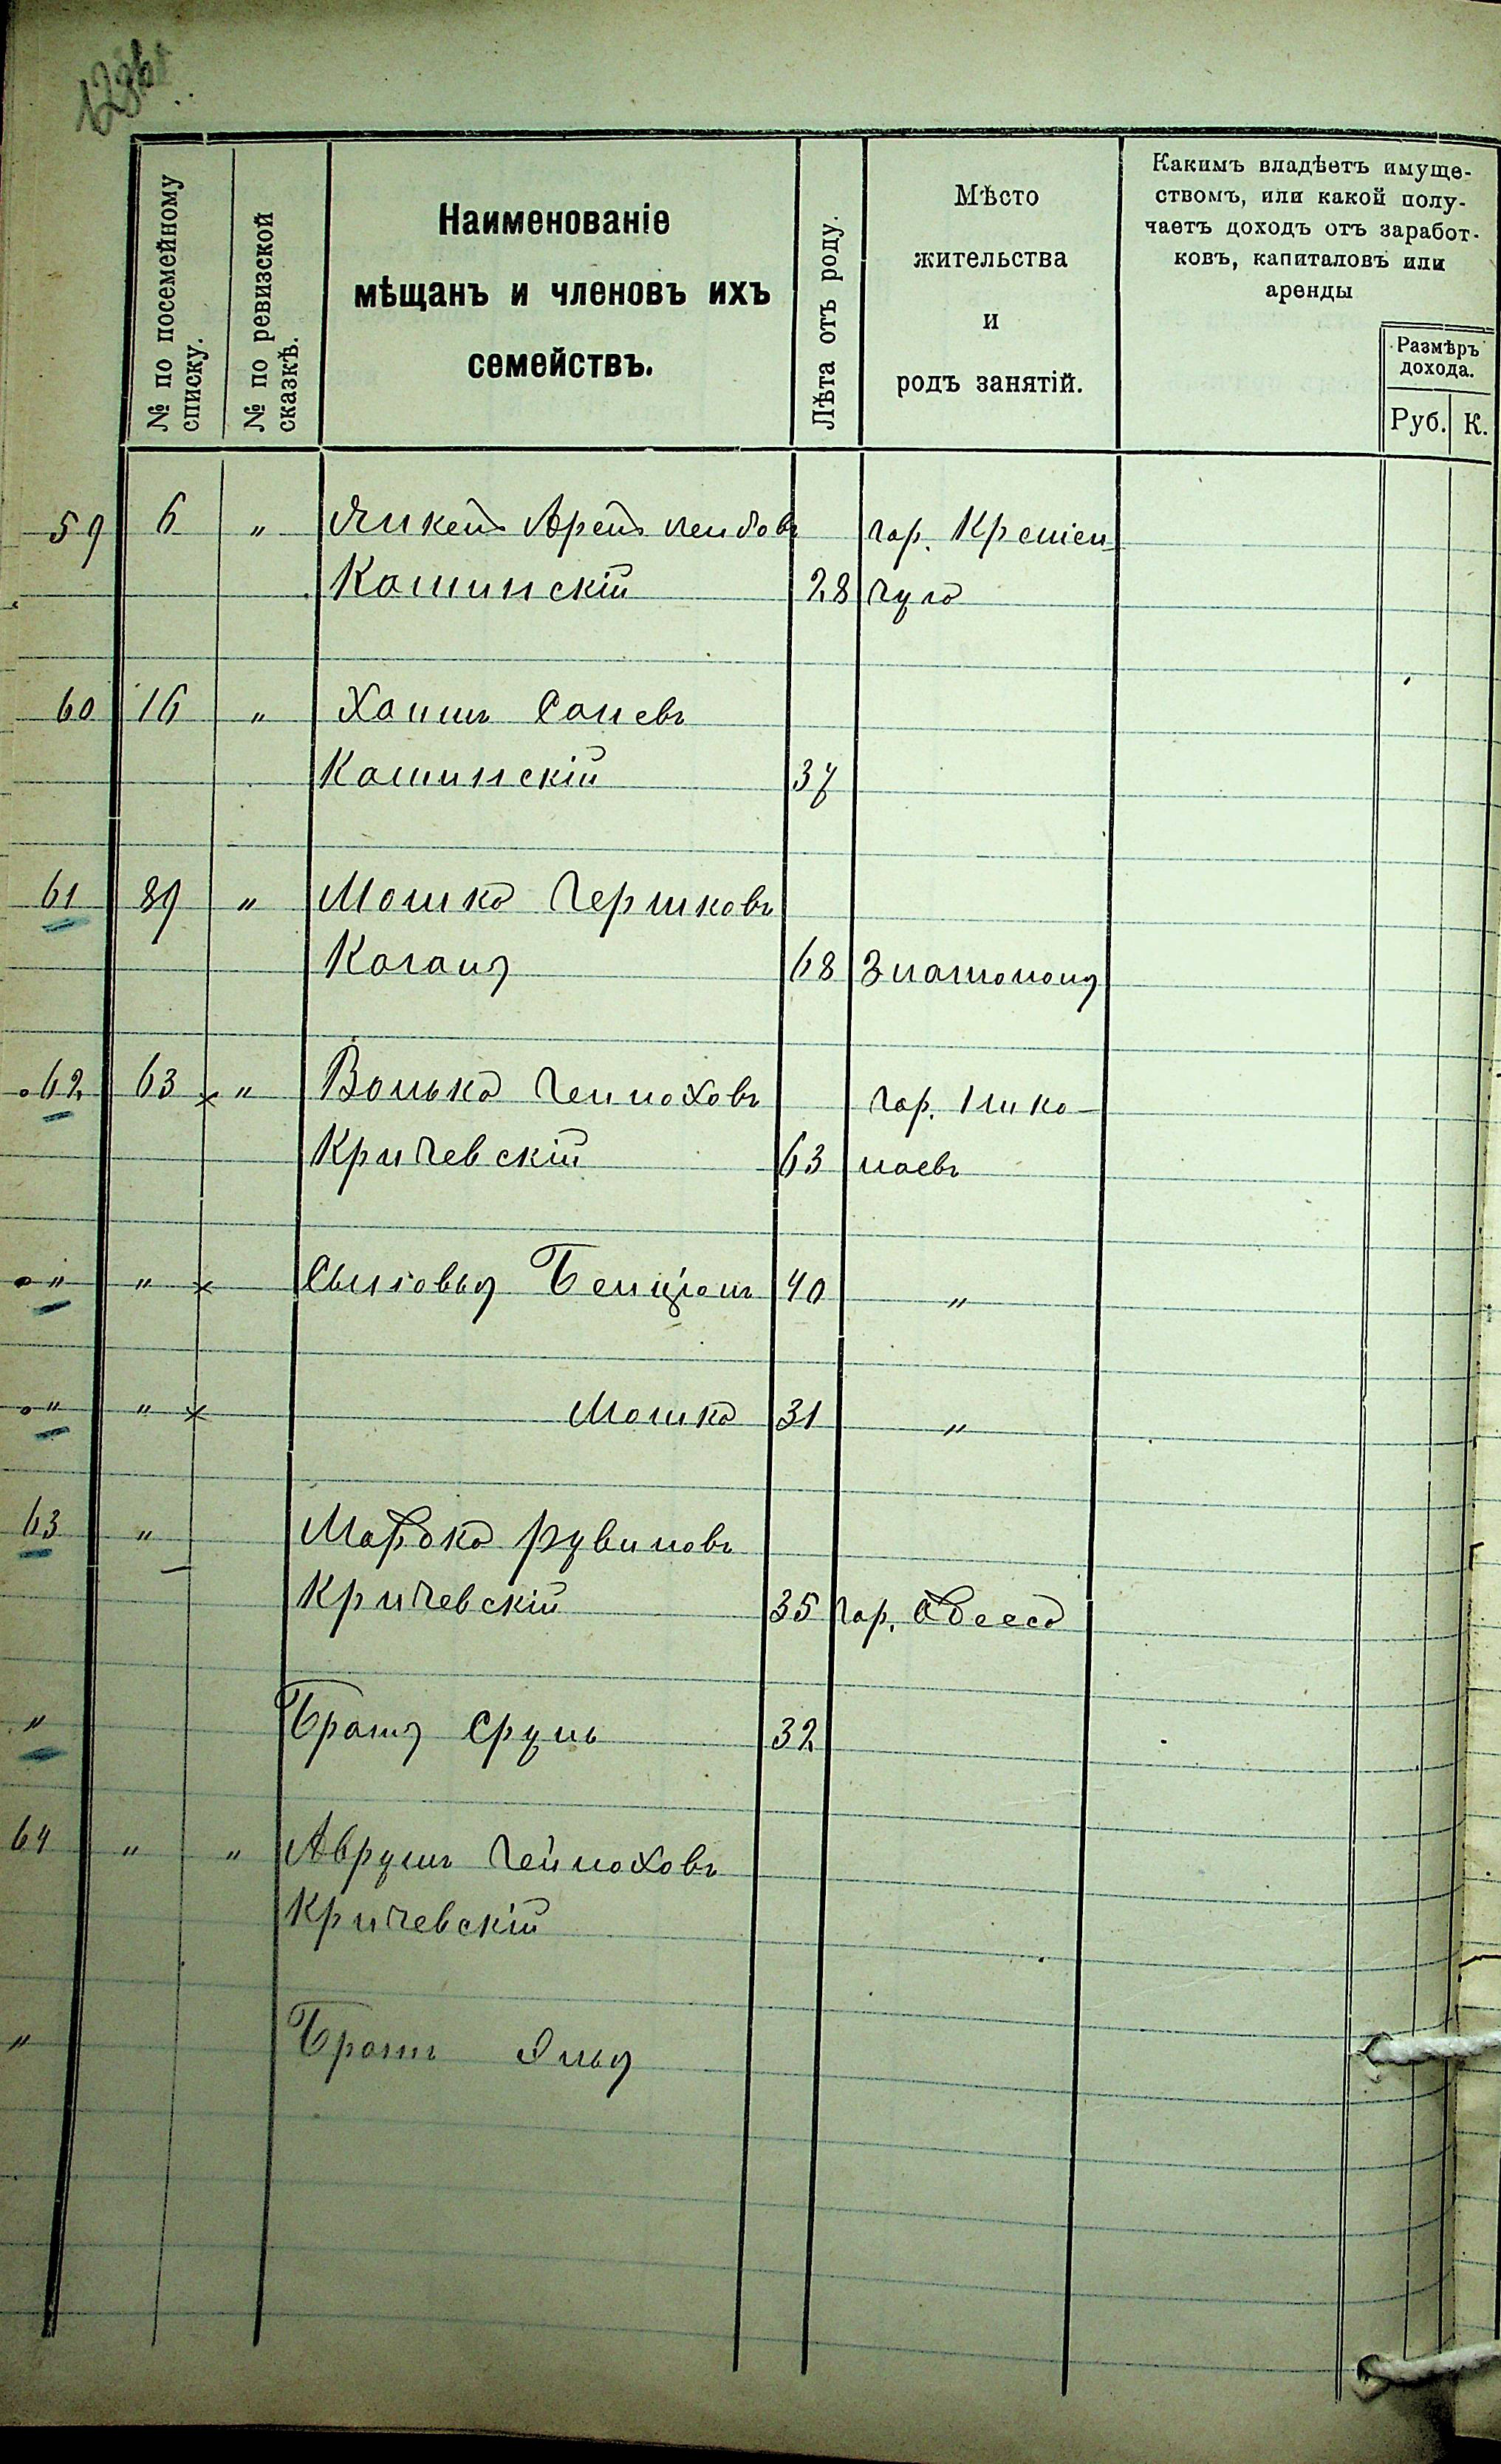 № по посемейному
списку.
№ по ревизской
сказкѣ.
Наименованіе
мѣщанъ и членовъ ихъ
семействъ.
Лѣта отъ роду.
Мѣсто
жительства
и
родъ занятій.
Какимъ владѣетъ имуще-
ствомъ, или какой полу-
чаетъ доходъ отъ заработ-
ковъ, капиталовъ или
аренды
Размѣръ
дохода.
Руб. К.
59 6 " гор. Кремен
Кошинскій 28 чуга
60 16 " Хаимъ
Кошинскій 37
61 89 " Мошко Гершковъ
Коганъ 68 Златополь
62 63 × " Волько Гейноховъ гор. Нико-
Кричевскій 63 лаевъ
" " × Сыновья Бенціонъ 40 "
" " × Мошко 31 "
63 " Мордко Рувиновъ
Кричевскій 35 гор. Одесса
" Братъ Сруль 32
64 " " Аврумъ Гейноховъ
Кричевскій
" Братъ Элья